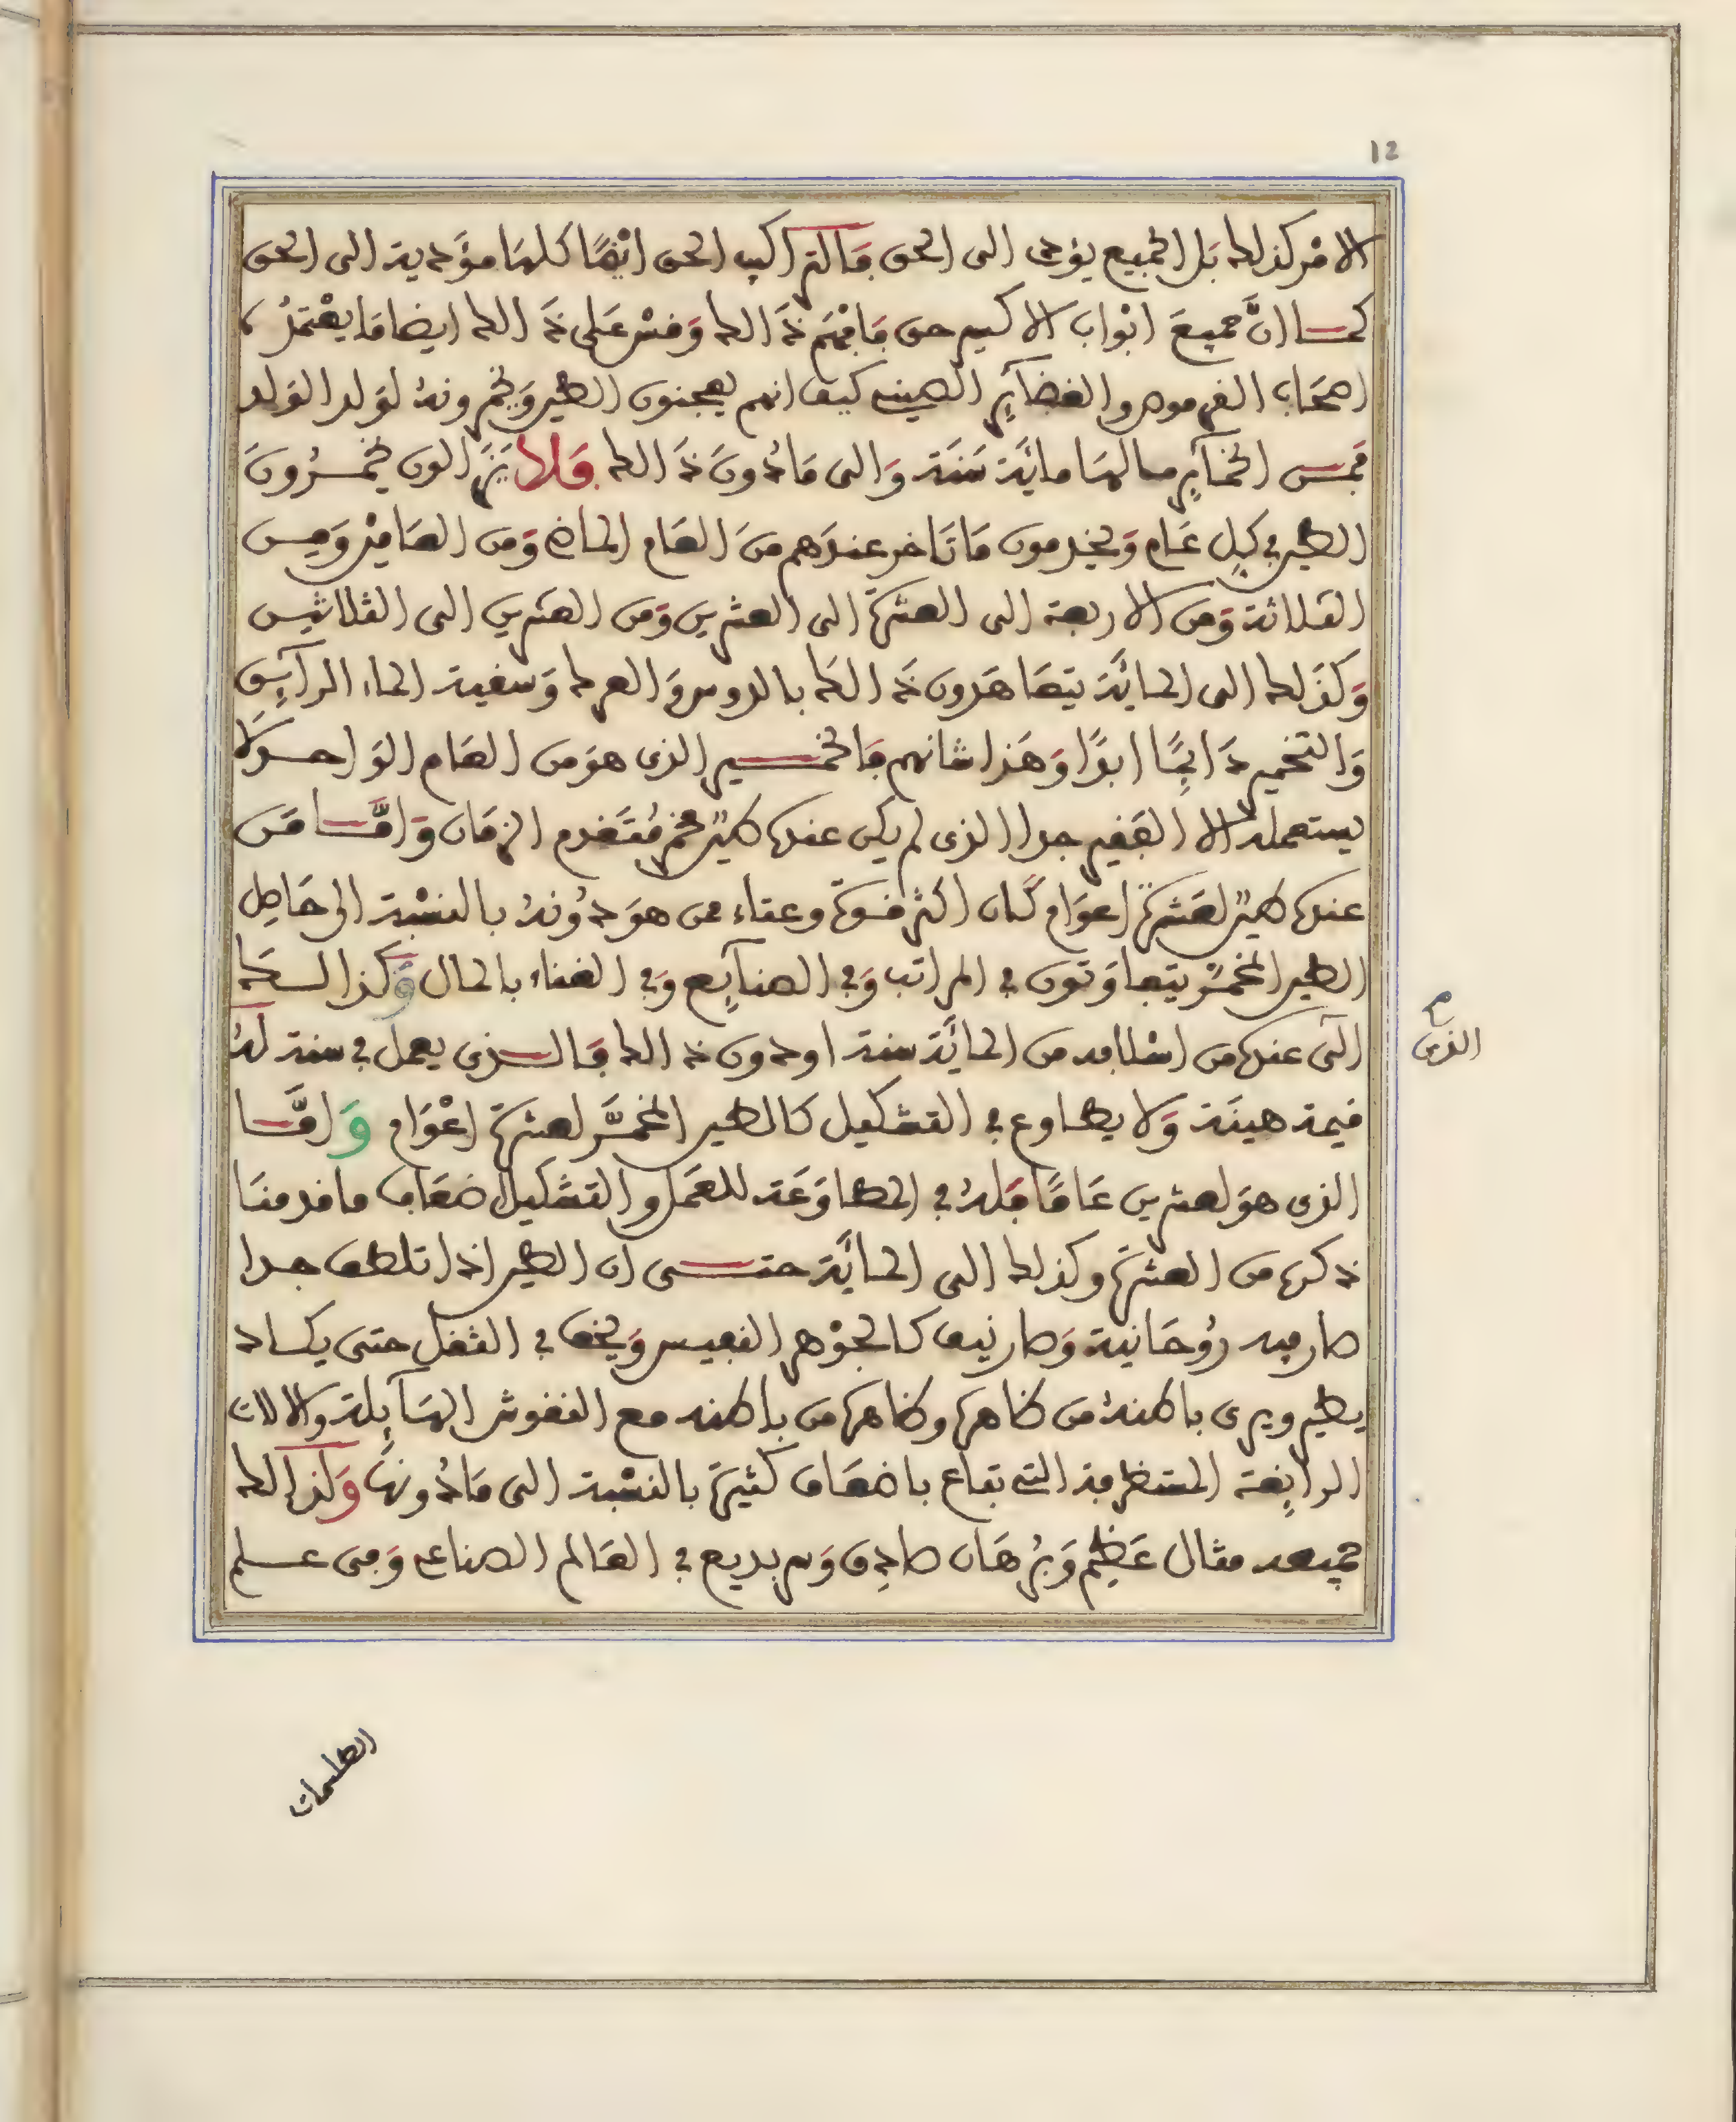 12
الامر كذلك بل الجميع يؤدى الى الحق فالتراكيب الحق ايضًا كلها مؤدية الى الحق
كما انَّ جميعَ ابْواب الاكسير حق فافْهَم ذَالك وَقسْ عَلى ذَالك ايضا مَا يعْتَمدُه
اصحَاب الفرموه والغضآير الصينى كيف انهم يعجنون الطين وَيخمرونهُ لوَلد الوَلد
فمن الخمآير مالهَا مائَة سَنَة وَالى مَا دُونَ ذَالك وَلا يَزَالون يخمرُونَ
الطين في كل عَام وَيخدمون مَا تَاخر عندَهم منَ العَام الماضى وَمن العَامين وَمن
الثلاثة وَمن الاربعة الى العشرة الى العشرين وَمن العشرين الى الثلاثين
وَكذَلك الى المائَة يتعَاهَدون ذَالك بالدوس وَالعرك وَسقية الماء الرآيق
وَالتخمير دَايمًا ابدًا وَهَذا شانهم فالخمير الذى هوَ من العَام الوَاحد لا
يستعمله الا الفَقير جدا الذى لم يكن عنده طين مخمر مُتَقدم الزمَان وَامَّا مَن
عنده طين لعَشرة اعوَام كَان اكثر قوة وغناء ممن هوَ دُونهُ بالنسْبة الى حَاصِل
الطين المخمَّر يتفاوَتون في المراتب وَفي الصنآيع وَفي الغناء بالمال وَكذا السكة
التى عنده من اسْلافه من المائَة سنة او دون ذالك فالذى يعمل في سنة لهُ
الذى
قيمة هينَة وَلا يطاوع في التشكيل كالطين المخمَّر لعشرة اعْوَام وَامَّا
الذى هوَ لعشرين عَامًا فَلهُ في المطاوَعَة للعَمل والتشكيل اضعَاف ما قدمنَا
ذكره من العشرة وكذلك الى المائَة حتى ان الطين اذا تلطف جدا
صار فيه رُوحَانية وَصار نيف كالجوْهر النفيس وَيخف في الثقل حتى يكاد
يطير ويرى باطنهُ من ظاهره وظاهره من باطنه مع النقوش الهَآيلة والالات
الرايقة المستظرفة التى تباع باضعَاف كثيرة بالنسْبة الى مَا دُونهَا وَكذالك
جميعه مثال عَظيم وَبُرهَان صادق وَسر بديع في العَالم الصناعى وَفى علم
الطلسمات